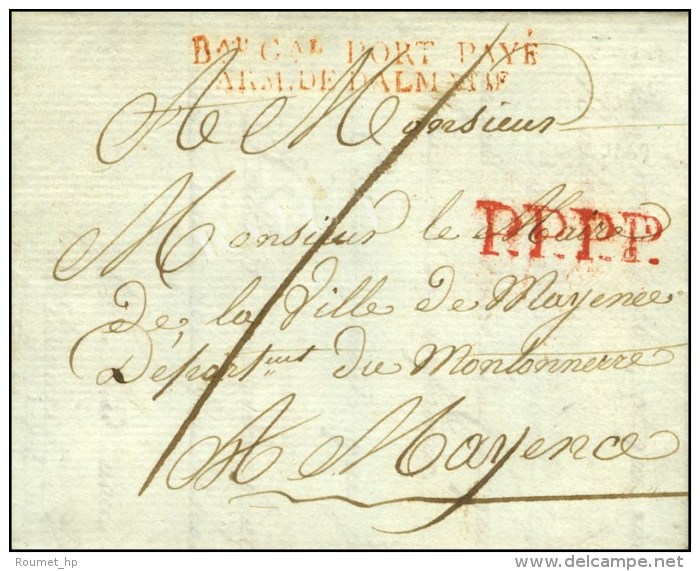 Bau GAL PORT PAYÉ
ARM. DE DALMATIE
A Monsieur
Monsieur le Maire
P.P.P.P.
de la Ville de Mayence
Départ.ment du Montonnerre
A Mayence
Roumet_hp
delcampe.net